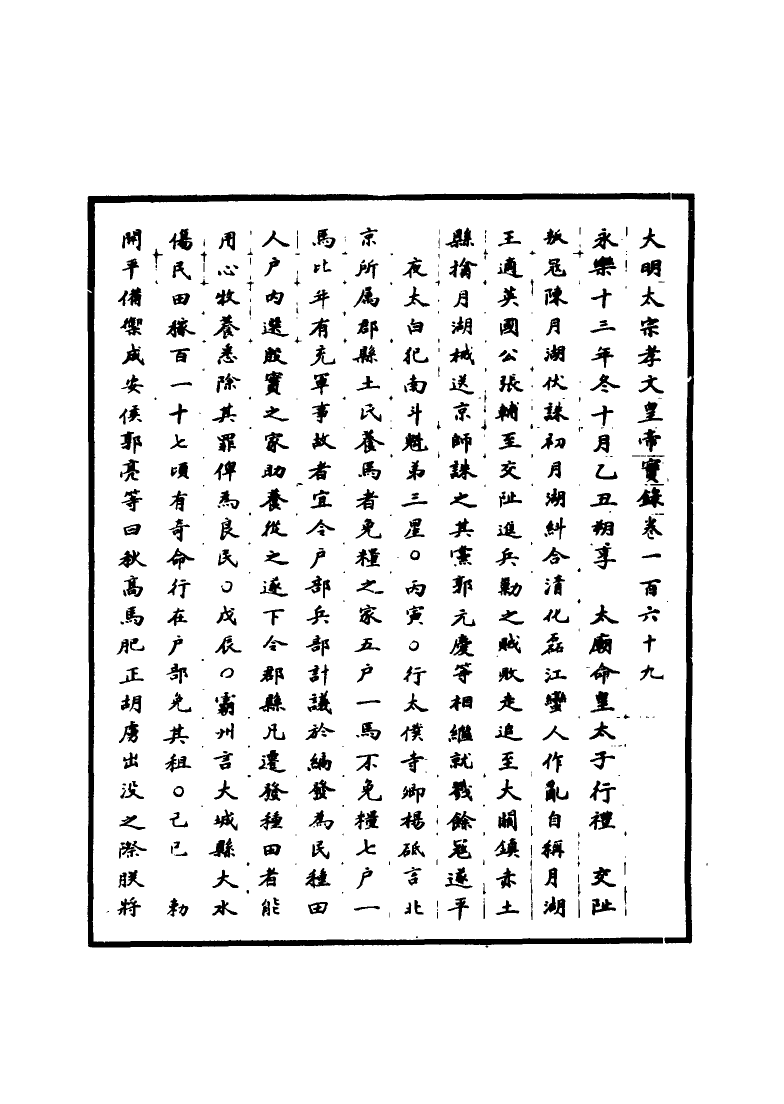 大明太宗孝文皇帝實錄卷一百六十九
永樂十三年冬十月乙丑朔享　太廟命皇太子行禮　交阯
叛寇陳月湖伏誅初月湖糾合清化磊江蠻人作亂自稱月湖
王適英國公張輔至交阯進兵勦之賊敗走追至大關鎮赤土
縣擒月湖械送京師誅之其黨郭元慶等相繼就戮餘寇遂平
夜太白犯南斗魁第三星○丙寅○行太僕寺卿楊砥言北
京所属郡縣土民養馬者免糧之家五户一馬不免糧七户一
馬比年有充軍事故者宜令户部兵部計議於編發為民種田
人户內選殷實之家助養從之遂下令郡縣凡遷發種田者能
用心牧養悉除其罪俾為良民○戊辰○霸州言大城縣大水
傷民田稼百一十七頃有奇命行在户部免其租○己巳　勅
開平備禦成安侯郭亮等曰秋高馬肥正胡虜出没之際朕將